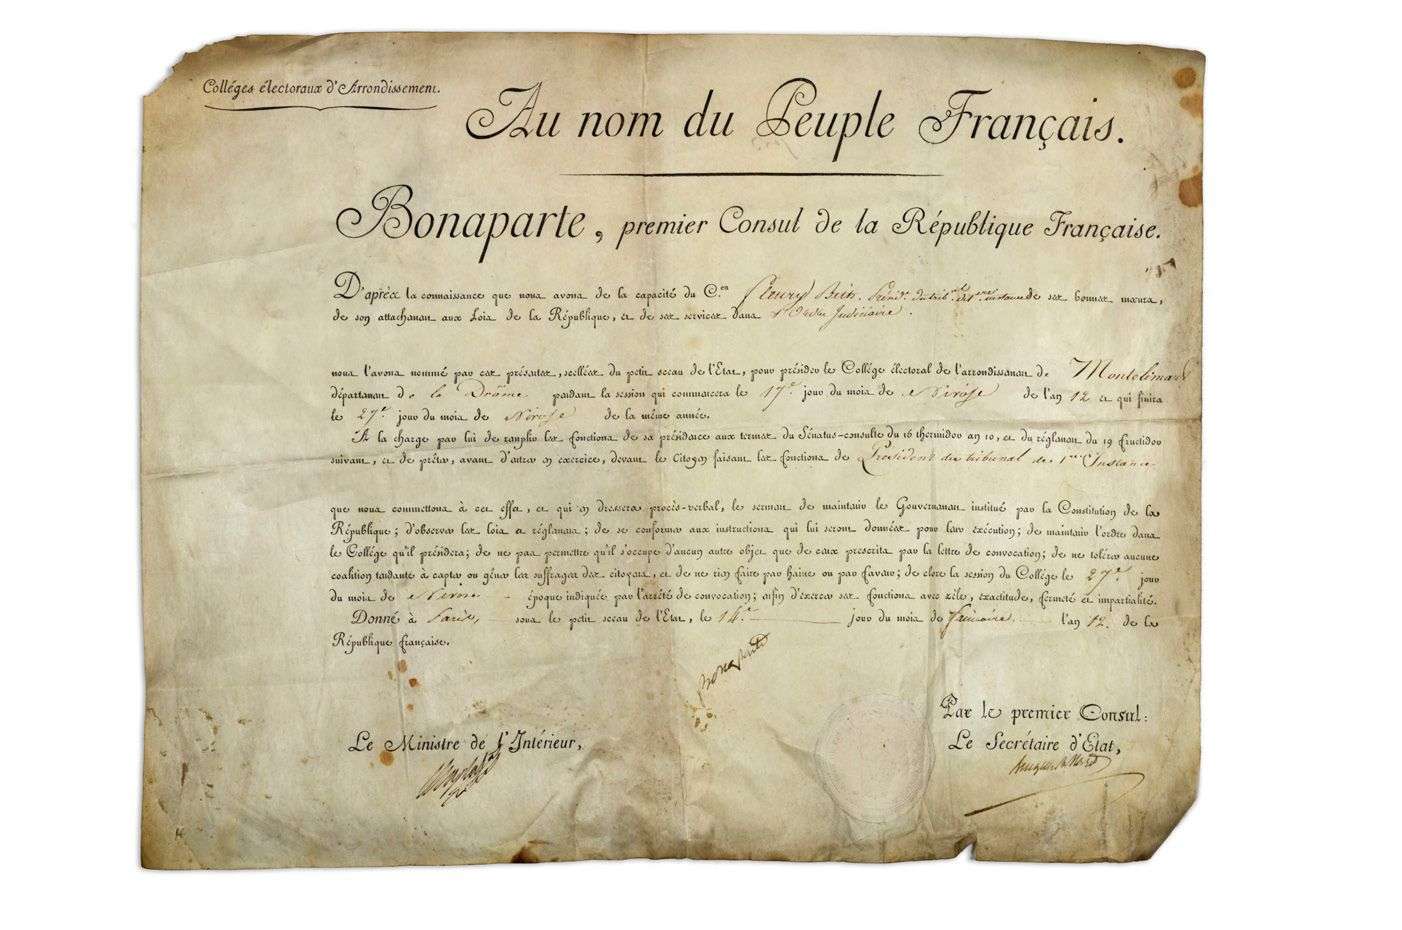 Colléges électoraux d'Arrondissement.
Au nom du Peuple Français.
Bonaparte, premier Consul de la République Française.
D'après la connaissance que nous avons de la capacité du C.en Présid.t du trib.al de 1.ere instance de ses bonnes mœurs,
de son attachement aux Lois de la République, et de ses services dans l'Ordre Judiciaire.
nous l'avons nommé par ces présentes, scellées du petit sceau de l'Etat, pour présider le Collége électoral de l'arrondissement de Montelimart
département de la Drôme pendant la session qui commencera le 17.e jour du mois de Nivôse de l'an 12 et qui finira
le 27.e jour du mois de Nivôse de la même année.
A la charge par lui de remplir les fonctions de sa présidence aux termes du Sénatus-consulte du 16 thermidor an 10, et du réglement du 19 fructidor
suivant, et de prêter, avant d'entrer en exercice, devant le Citoyen faisant les fonctions de Président du tribunal de 1.ere Instance
que nous commettons à cet effet, et qui en dressera procès-verbal, le serment de maintenir le Gouvernement institué par la Constitution de la
République; d'observer les lois et réglemens; de se conformer aux instructions qui lui seront données pour leur exécution; de maintenir l'ordre dans
le Collége qu'il présidera; de ne pas permettre qu'il s'occupe d'aucun autre objet que de ceux prescrits par la lettre de convocation; de ne tolérer aucune
coalition tendante à capter ou gêner les suffrages des citoyens, et de ne rien faire par haine ou par faveur; de clore la session du Collége le 27.e jour
du mois de Nivose époque indiquée par l'arrêté de convocation; afin d'exercer ses fonctions avec zèle, exactitude, fermeté et impartialité.
Donné à Paris, sous le petit sceau de l'Etat, le 14.e jour du mois de frimaire l'an 12. de la
République française.
Bonaparte
Par le premier Consul:
Le Ministre de l'Intérieur,
Le Secrétaire d'Etat,